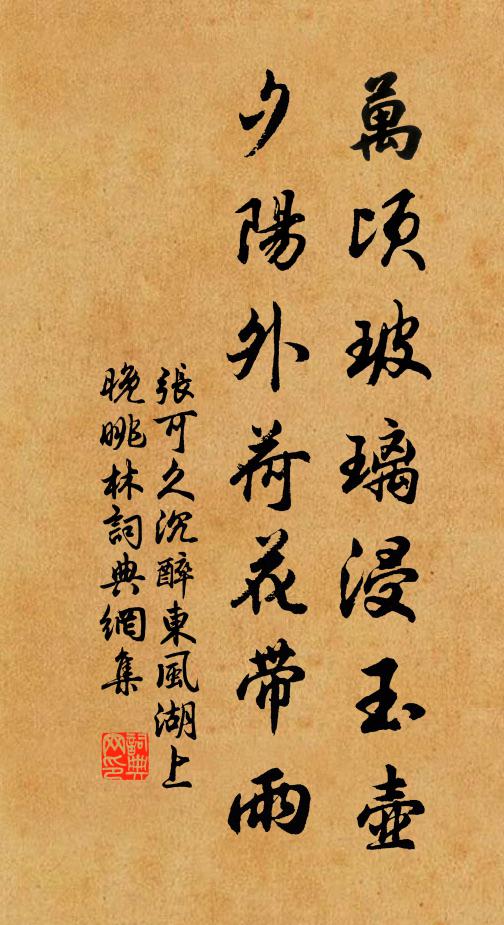 萬頃玻璃浸玉壺
夕陽外荷花帶雨
張可久沉醉東風湖上
晚眺林詞典網集
詞典網印